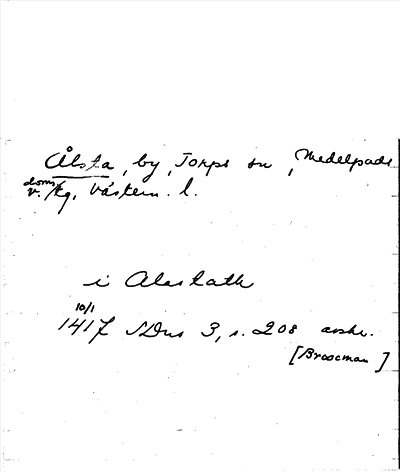 Ålsta, by, Torps sn, Medelpads
doms
v. /tg, Västern. l.
i Alastath
10/1
1417 SDns 3, s. 208 avskr.
[Broocman]